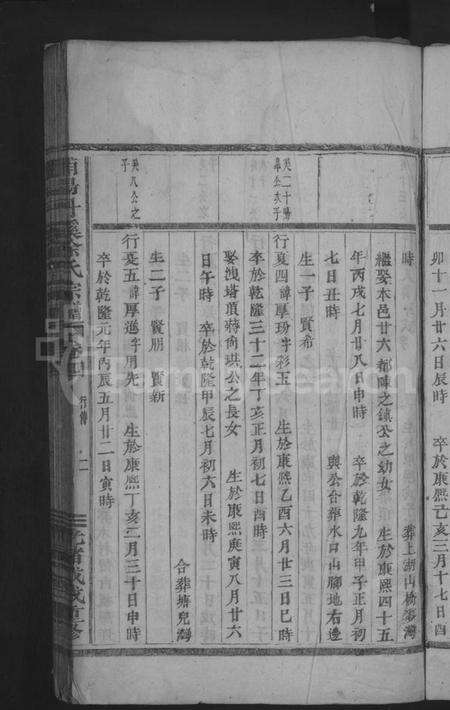 卯十一月廿六日辰時 卒於康熙己亥三月十七日酉
時 葬上湖山
繼娶本邑廿六都陳之鎮公之幼女 生於康熙四十五
年丙戌七月廿八日申時 卒於乾隆九年甲子正月初
七日丑時 與公合葬水口山腳地右邊
生一子 賢希
行夏四諱厚 字彩玉 生於康熙乙酉六月廿三日巳時
卒於乾隆三十二年丁亥正月初七日酉時
娶洩塔頂蔣尚 公之長女 生於康熙庚寅八月廿六
日午時 卒於乾隆甲辰七月初六日未時
合葬塘兒灣
癸八公之子
行夏五諱厚 字用先 生於康熙丁亥二月三十日申時
生二子 賢朋 賢新
卒於乾隆元年丙辰五月廿二日寅時
徐氏宗譜 卷四 行傳 二